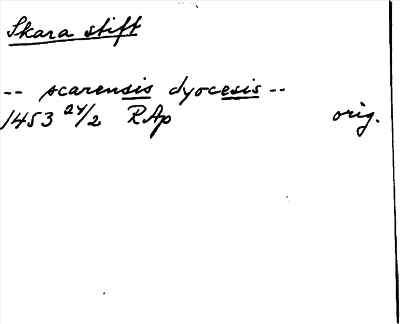 Skara stift
-- scarensis dyocesis --
1453 24/2 RAp orig.